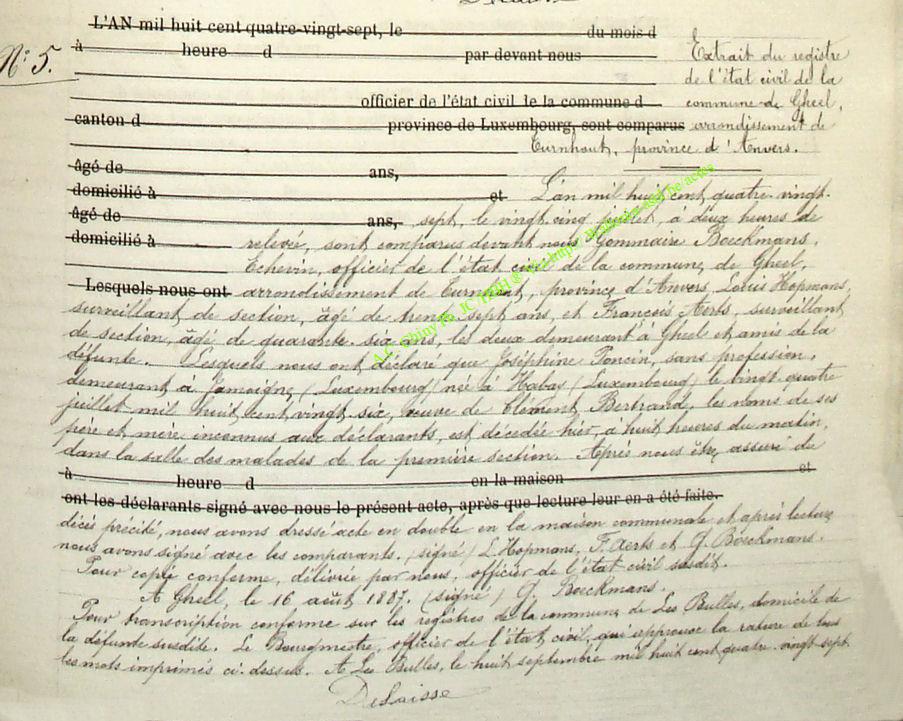 L'AN mil huit cent quatre-vingt-sept, le du mois d
N° 5.
à heure d par devant nous
officier de l'état civil le la commune d
canton d province de Luxembourg, sont comparus
Extrait du registre
de l'état civil de la
commune de Gheel,
arrondissement de
Turnhout, province d'Anvers.
âgé de ans,
domicilié à et L'an mil huit cent quatre-vingt-
âgé de ans, sept, le vingt-cinq juillet, à deux heures de
domicilié à relevé, sont comparus devant nous Gommaire Boeckmans,
Echevin, officier de l'état civil de la commune de Gheel,
Lesquels nous ont arrondissement de Turnhout, province d'Anvers, Louis Hopmans,
surveillant de section, âgé de trente sept ans, et François Aerts, surveillant
de section, âgé de quarante-six ans, les deux demeurant à Gheel et amis de la
défunte. Lesquels nous ont déclaré que Joséphine Poncin, sans profession,
demeurant à Jamoigne (Luxembourg) née à Habas (Luxembourg) le vingt-quatre
juillet mil huit cent vingt-six, veuve de Clément Bertrand, les noms de ses
père et mère inconnus aux déclarants, est décédée hier, à huit heures du matin,
dans la salle des malades de la première section. Après nous être assuré de
à heure d en la maison et
ont les déclarants signé avec nous le présent acte, après que lecture leur en a été faite.
décès précité, nous avons dressé acte en double en la maison communale et après lecture
nous avons signé avec les comparants. (signé) L. Hopmans, F. Aerts et G. Boeckmans.
Pour copie conforme, délivrée par nous, officier de l'état civil susdit.
A Gheel, le 16 août 1887. (signé) G. Boeckmans.
Pour transcription conforme sur les registres de la commune de Les Bulles, domicile de
la défunte susdite. Le Bourgmestre, officier de l'état civil, qui approuve la rature de tous
les mots imprimés ci-dessus. A Les Bulles, le huit septembre mil huit cent quatre-vingt-sept.